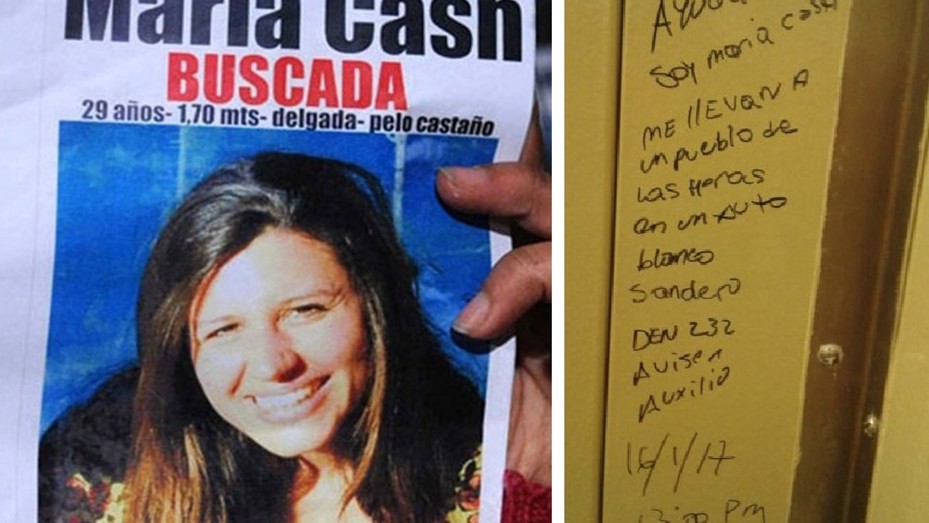 María Cash
BUSCADA
29 años- 1,70 mts- delgada- pelo castaño
Ayuda
Soy maria cash
ME llEVAN A
un pueblo de
Las Heras
en un Auto
blanco
Sandero
DEN 232
Avisen
Auxilio
16/1/17
13:00 Pm